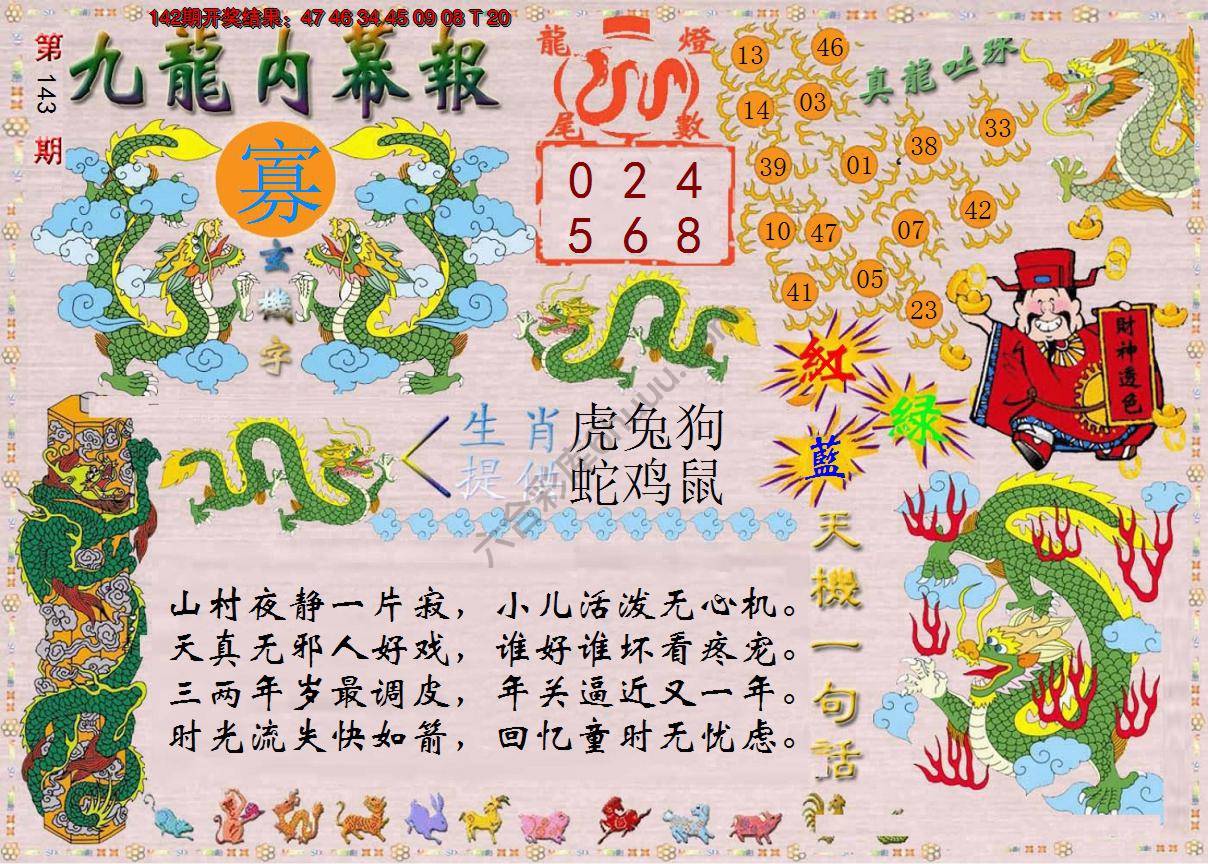 142期开奖结果：47 46 34 45 09 08 T 20
第
143
期
九龍內幕報
寡
玄
機
字
龍 燈
尾 數
0 2 4
5 6 8
真龍吐珠
13
46
14
03
39
01
38
33
10
47
07
42
41
05
23
紅
綠
藍
財神透色
生肖
提供
虎兔狗
蛇鸡鼠
天機一句話
山村夜静一片寂，小儿活泼无心机。
天真无邪人好戏，谁好谁坏看疼宠。
三两年岁最调皮，年关逼近又一年。
时光流失快如箭，回忆童时无忧虑。